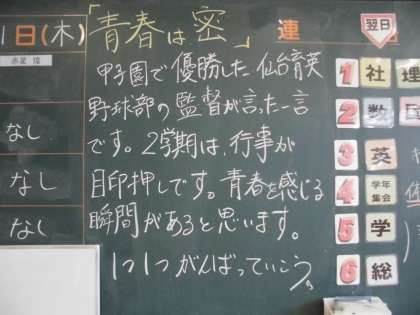 1日(木)
なし
なし
なし
「青春は密」
甲子園で優勝した仙台育英
野球部の監督が言った一言
です。2学期は、行事が
目白押しです。青春を感じる
瞬間があると思います。
1つ1つがんばっていこう。
連
翌日
1 社 理
2 数
3 英
4 学年集会
5 学
6 総